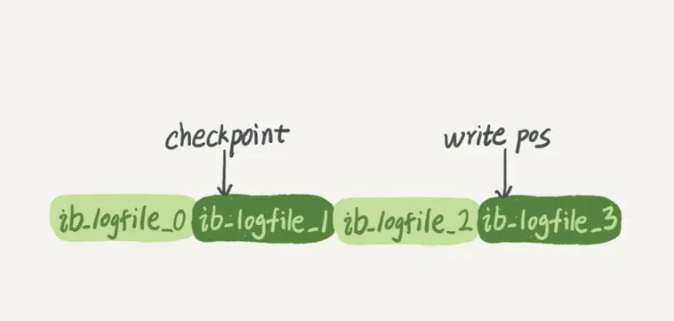 checkpoint
write pos
ib_logfile_0
ib_logfile_1
ib_logfile_2
ib_logfile_3